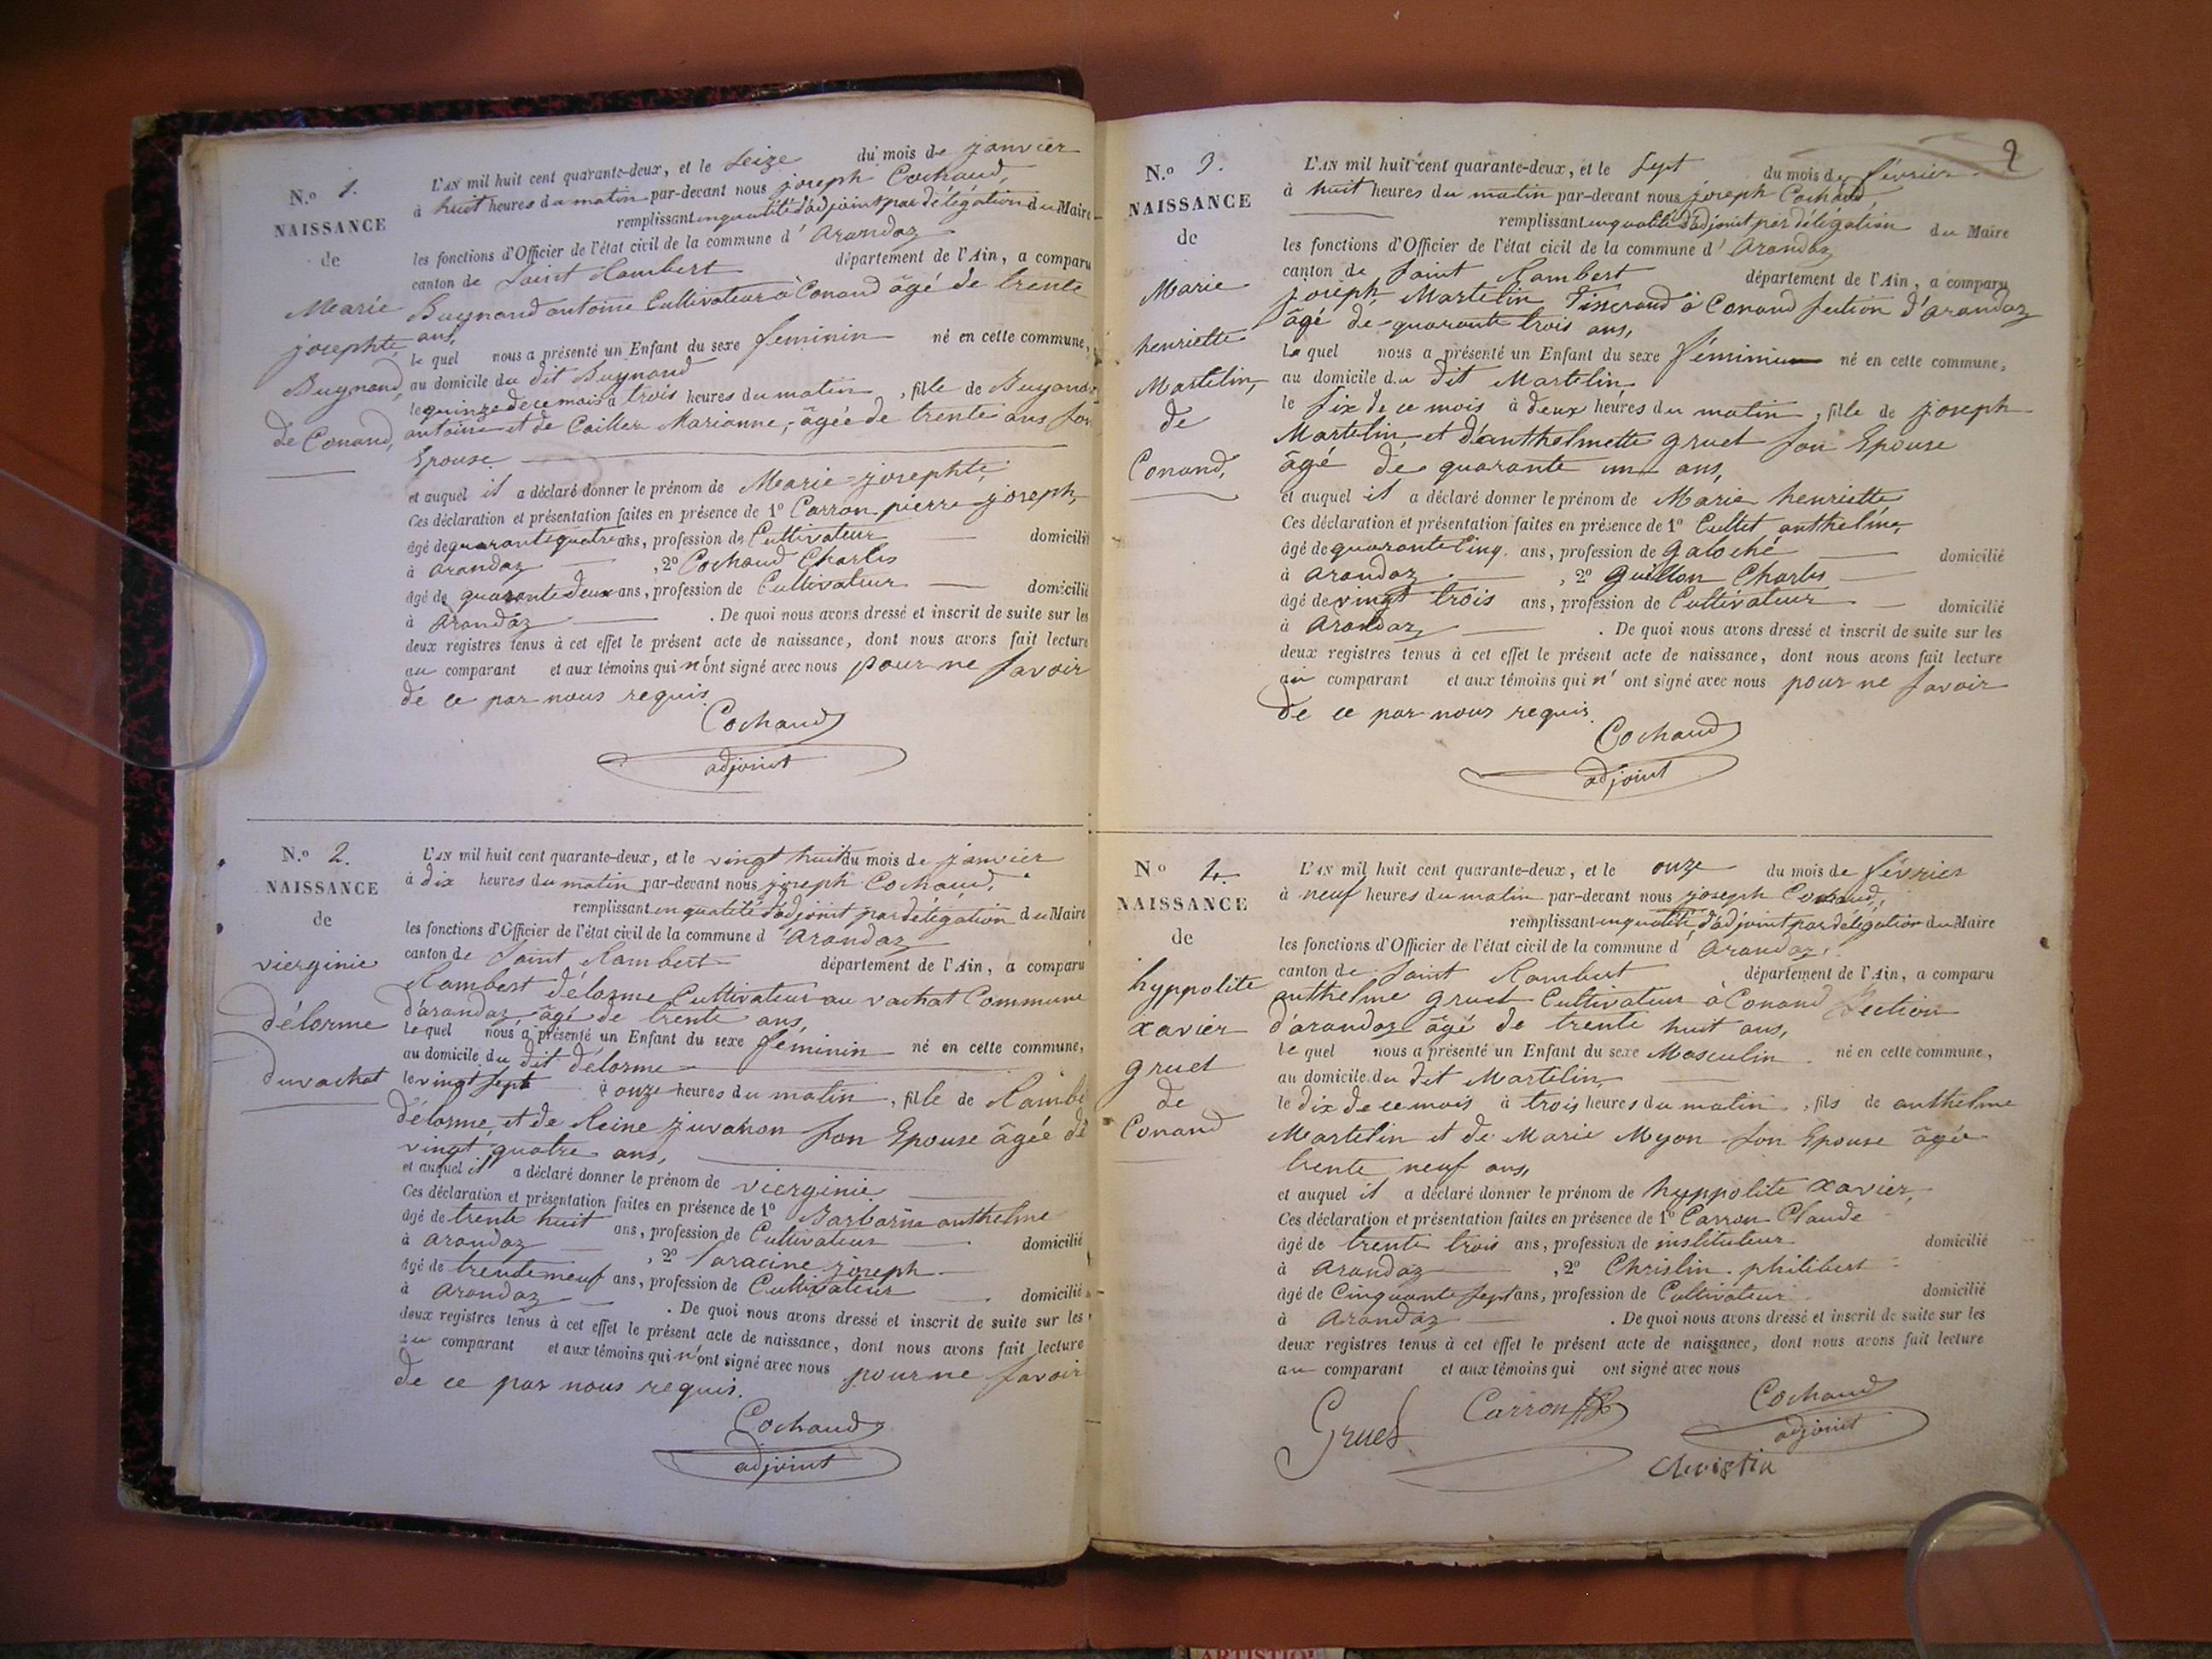 N.o 1.
NAISSANCE
de
Marie
josephte,
Buynand,
de Conand,
L'AN mil huit cent quarante-deux, et le Seize du mois de janvier
à huit heures du matin par-devant nous joseph Cochaud,
remplissant en qualité d'adjoint par délégation du Maire
les fonctions d'Officier de l'état civil de la commune d'Arandaz
canton de Saint Rambert département de l'Ain, a comparu
Buynand antoine Cultivateur à Conand âgé de trente
ans,
le quel nous a présenté un Enfant du sexe feminin né en cette commune,
au domicile du dit Buynand
le quinze de ce mois à trois heures du matin, fille de Buynand
antoine et de Cailler Marianne, âgée de trente ans son
Epouse
et auquel il a déclaré donner le prénom de Marie-josephte,
Ces déclaration et présentation faites en présence de 1o Carron pierre joseph,
âgé de quarante quatre ans, profession de Cultivateur domicilié
à Arandaz, 2o Cochaud Charles
âgé de quarante deux ans, profession de Cultivateur domicilié
à Arandaz. De quoi nous avons dressé et inscrit de suite sur les
deux registres tenus à cet effet le présent acte de naissance, dont nous avons fait lecture
au comparant et aux témoins qui n'ont signé avec nous pour ne savoir
de ce par nous requis.
Cochaud
adjoint
N.o 2.
NAISSANCE
de
vierginie
délorme
du vachat
L'AN mil huit cent quarante-deux, et le vingt huit du mois de janvier
à dix heures du matin par-devant nous joseph Cochaud,
remplissant en qualité d'adjoint par délégation du Maire
les fonctions d'Officier de l'état civil de la commune d'Arandaz
canton de Saint Rambert département de l'Ain, a comparu
Rambert délorme Cultivateur au vachat Commune
d'arandaz âgé de trente ans,
le quel nous a présenté un Enfant du sexe féminin né en cette commune,
au domicile du dit délorme
le vingt sept à onze heures du matin, fille de Rambe
délorme, et de Reine juvanon son Epouse âgée de
vingt quatre ans,
et auquel il a déclaré donner le prénom de vierginie
Ces déclaration et présentation faites en présence de 1o anthelme
âgé de trente huit ans, profession de Cultivateur domicilié
à Arandaz, 2o Saracine joseph
âgé de trente neuf ans, profession de Cultivateur domicilié
à Arandaz. De quoi nous avons dressé et inscrit de suite sur les
deux registres tenus à cet effet le présent acte de naissance, dont nous avons fait lecture
au comparant et aux témoins qui n'ont signé avec nous pour ne savoir
de ce par nous requis.
Cochaud
adjoint
2
N.o 3.
NAISSANCE
de
Marie
henriette
Martelin,
de
Conand,
L'AN mil huit cent quarante-deux, et le Sept du mois de février
à huit heures du matin par-devant nous joseph Cochaud,
remplissant en qualité d'adjoint par délégation du Maire
les fonctions d'Officier de l'état civil de la commune d'Arandaz
canton de Saint Rambert département de l'Ain, a comparu
joseph Martelin Tisserand à Conand section d'arandaz
âgé de quarante trois ans,
le quel nous a présenté un Enfant du sexe féminin né en cette commune,
au domicile du dit Martelin
le Six de ce mois à deux heures du matin, fille de joseph
Martelin, et d'anthelmette gruet son Epouse
âgé de quarante un ans,
et auquel il a déclaré donner le prénom de Marie henriette
Ces déclaration et présentation faites en présence de 1o Cultet anthelme,
âgé de quarante Cinq ans, profession de galoché domicilié
à Arandaz, 2o guillon Charles
âgé de vingt trois ans, profession de Cultivateur domicilié
à Arandaz. De quoi nous avons dressé et inscrit de suite sur les
deux registres tenus à cet effet le présent acte de naissance, dont nous avons fait lecture
au comparant et aux témoins qui n'ont signé avec nous pour ne savoir
de ce par nous requis.
Cochaud
adjoint
No 4.
NAISSANCE
de
hyppolite
xavier
gruet
de
Conand
L'AN mil huit cent quarante-deux, et le onze du mois de février
à neuf heures du matin par-devant nous joseph Cochaud,
remplissant en qualité d'adjoint par délégation du Maire
les fonctions d'Officier de l'état civil de la commune d'Arandaz,
canton de Saint Rambert département de l'Ain, a comparu
anthelme gruet Cultivateur à Conand section
d'arandaz âgé de trente huit ans,
le quel nous a présenté un Enfant du sexe Masculin né en cette commune,
au domicile du dit Martelin,
le dix de ce mois à trois heures du matin, fils de anthelme
Martelin et de Marie Myon son Epouse âgée
trente neuf ans,
et auquel il a déclaré donner le prénom de hyppolite xavier,
Ces déclaration et présentation faites en présence de 1o Carron Claude
âgé de trente trois ans, profession de instituteur domicilié
à Arandaz, 2o Christin philibert
âgé de Cinquante sept ans, profession de Cultivateur domicilié
à Arandaz. De quoi nous avons dressé et inscrit de suite sur les
deux registres tenus à cet effet le présent acte de naissance, dont nous avons fait lecture
au comparant et aux témoins qui ont signé avec nous
Gruet Carron Cochaud
adjoint
Christin